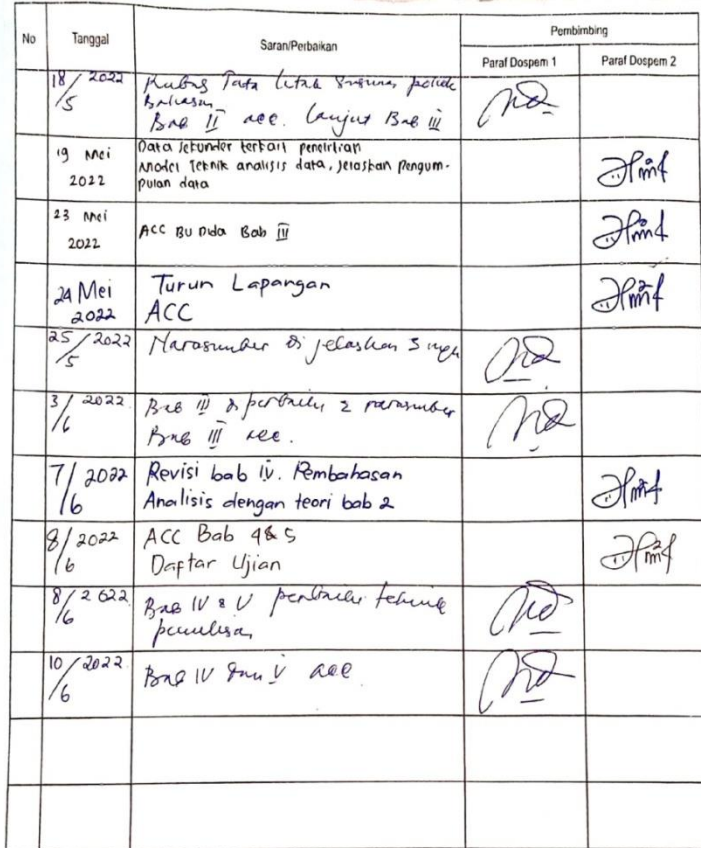 No Tanggal Saran/Perbaikan Pembimbing
Paraf Dospem 1 Paraf Dospem 2
18/5 2022 Tata letak
Bab II acc. Lanjut Bab III
19 Mei 2022 Data sekunder terkait penelitian
Model Teknik analisis data, jelaskan Pengum-
pulan data
23 Mei 2022 ACC BU Dida Bab III
24 Mei 2022 Turun Lapangan
ACC
25/5 2022 Narasumber di jelaskan
3/6 2022 Bab III di perbaiki 2 narasumber
Bab III acc.
7/6 2022 Revisi bab IV. Pembahasan
Analisis dengan teori bab 2
8/6 2022 ACC Bab 4&5
Daftar Ujian
8/6 2022 Bab IV & V perbaiki teknik
penulisan
10/6 2022 Bab IV dan V acc